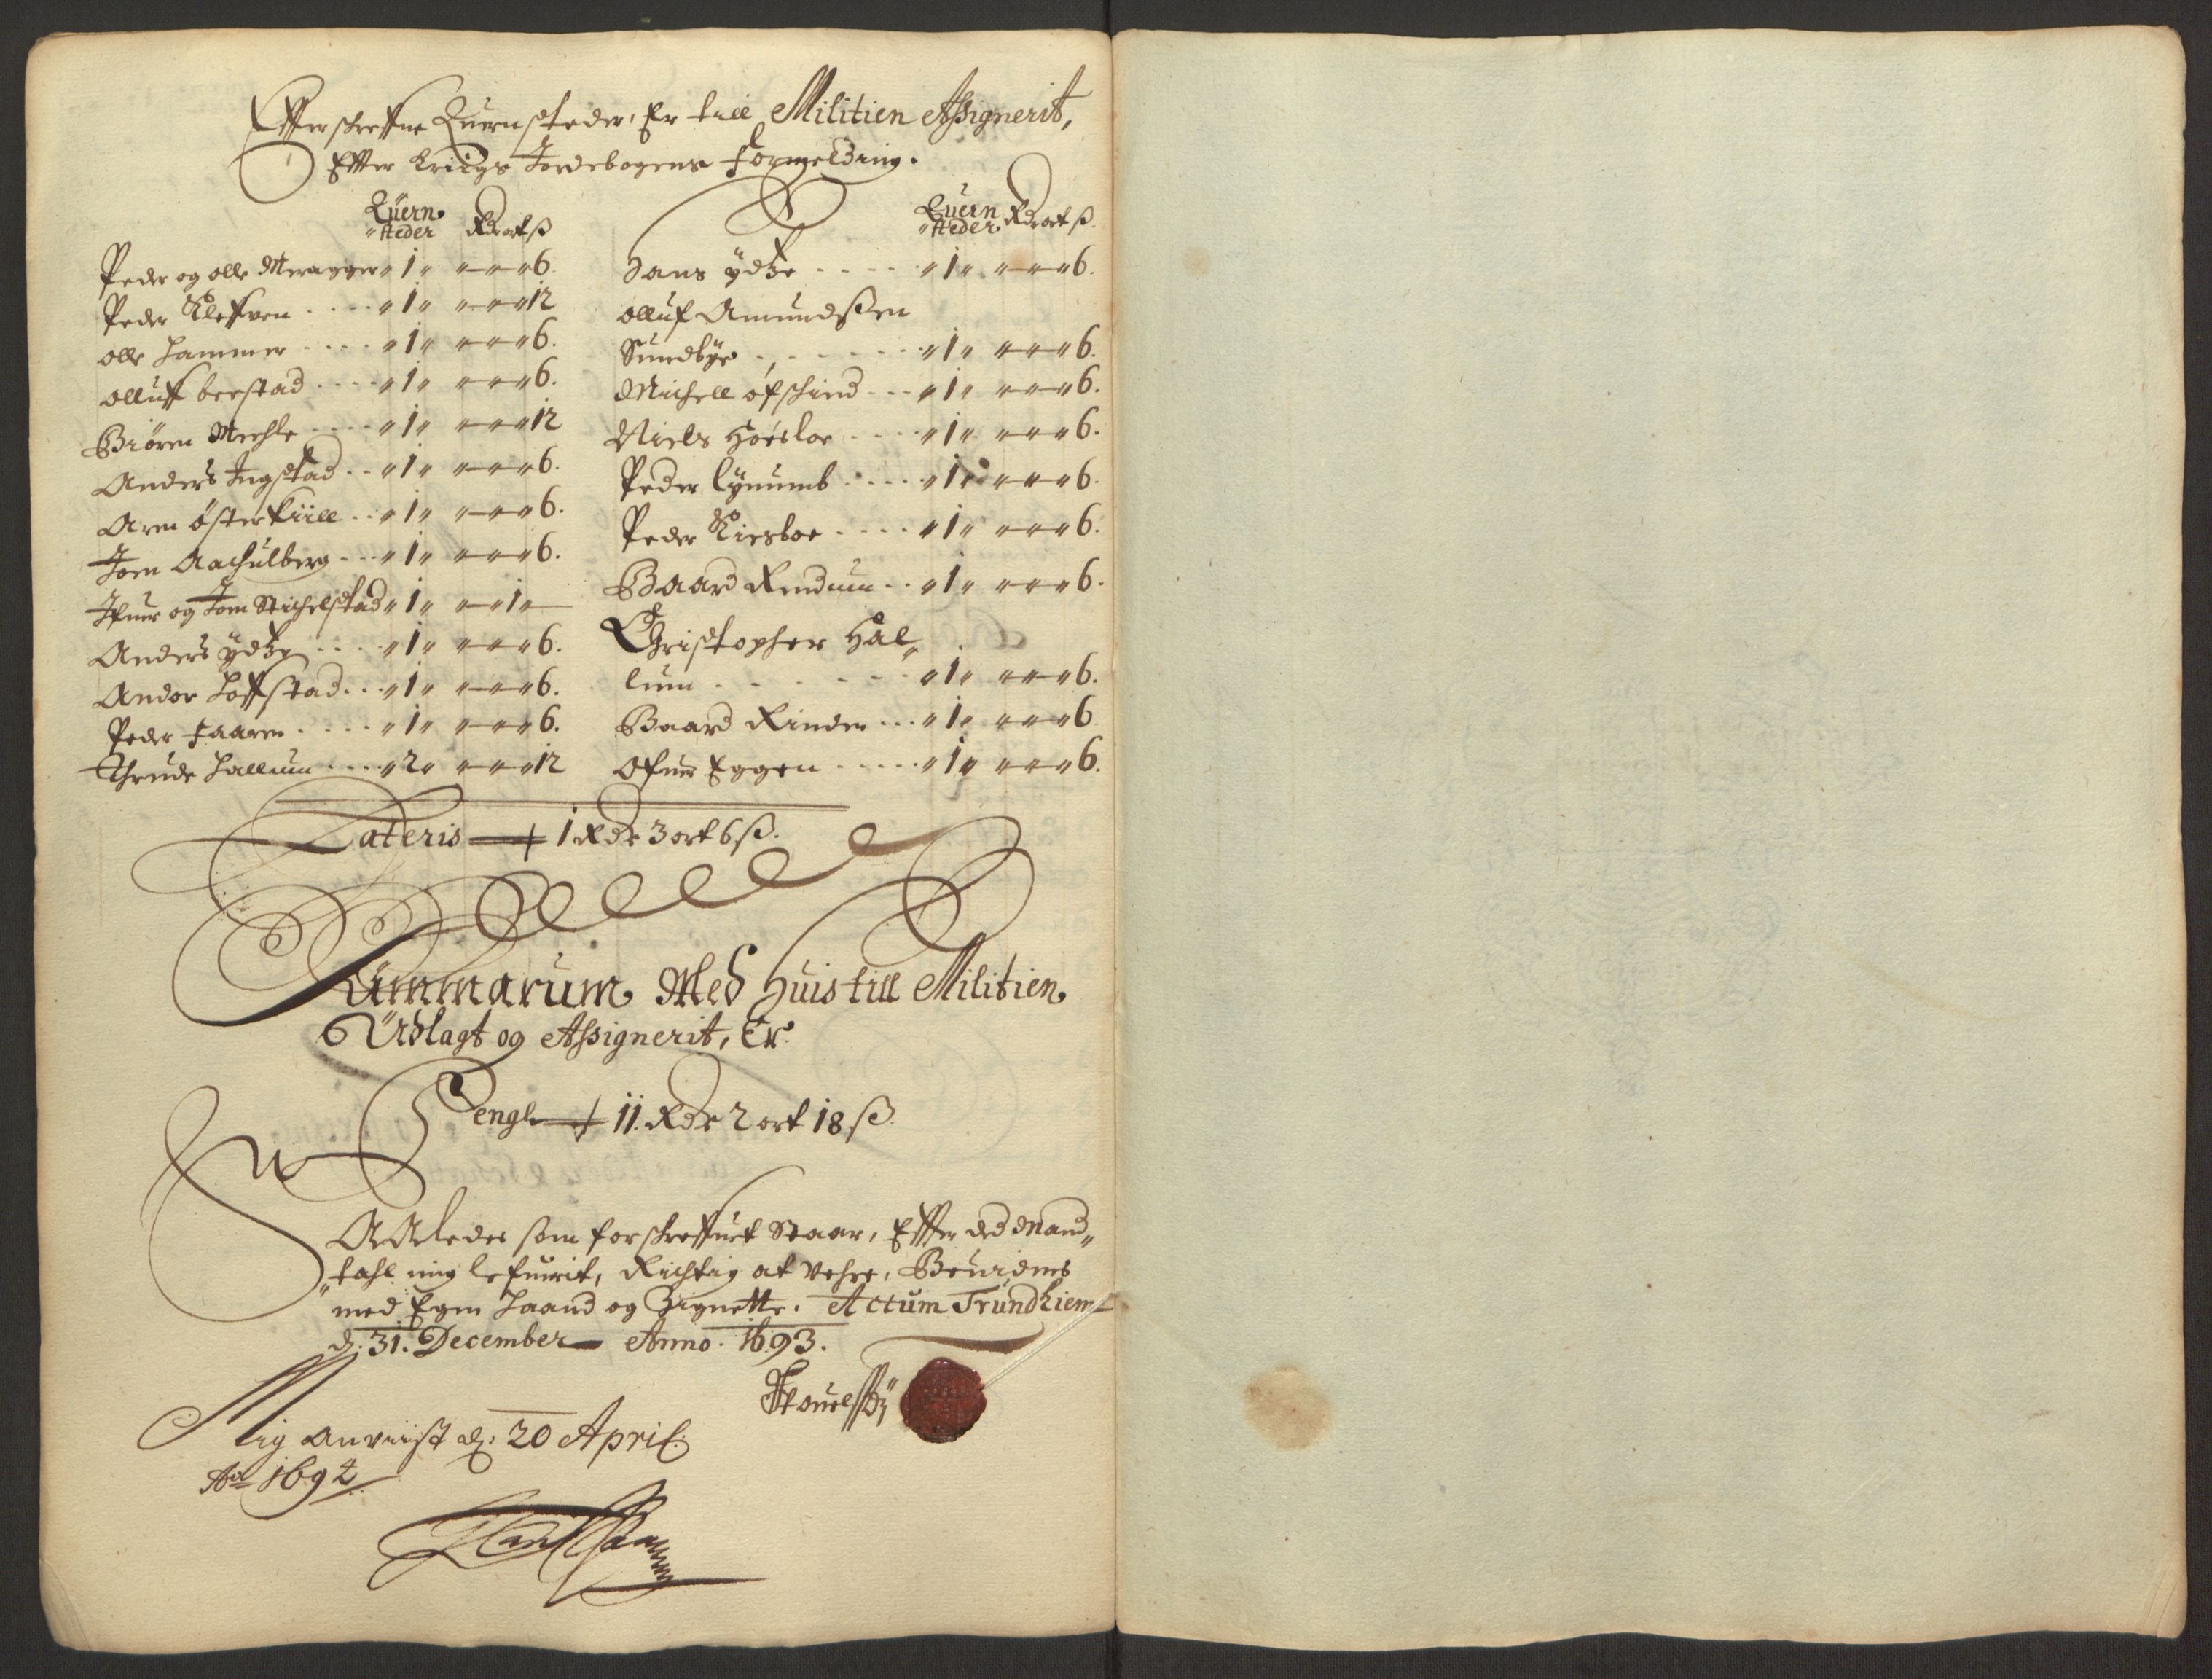 Effterschreffne Quernsteder, Er till Militien Assignerit,
Effter Kriigs Jordebogens formelding.
Quern
steder Rdr ort ß
Peder og olle Meragger " 1 " " — " — " 6.
Peder Kleffven . . . . " 1 " " — " — " 12
olle Hammer . . . . " 1 " " — " — " 6.
olluff beestad . . . . " 1 " " — " — " 6.
Biören Mechle . . . . " 1 " " — " — " 12
Anders Jngstad . . " 1 " " — " — " 6.
Aren österkiill . . " 1 " " — " — " 6.
Joen Aachulberg . . . " 1 " " — " — " 6.
Jfuer og Joen Stichelstad " 1 " " — " 1 " —
Anders ydtze . . . . " 1 " " — " — " 6.
Andor Hoffstad . . . " 1 " " — " — " 6.
Peder faaren . . . . " 1 " " — " — " 6.
Thrude Hallum . . . . " 2 " " — " — " 12
Quern
steder Rdr ort ß.
Hans ydtze . . . . . " 1 " " — " — " 6.
olluf Amundßen
Sundbye . . . . . . " 1 " " — " — " 6.
Michell ofschind . . . " 1 " " — " — " 6.
Niels Høesloe . . . . " 1 " " — " — " 6.
Peder lynumb . . . . . " 1 " " — " — " 6.
Peder Kiesboe . . . . " 1 " " — " — " 6.
Baard Rendum . . " 1 " " — " — " 6.
Christopher Hal„
lum . . . . . . " 1 " " — " — " 6.
Baard Rinden . . . " 1 " " — " — " 6
Ofuer Eggen . . . . . " 1 " " — " — " 6.
Lateris — 1 Rdr 3 ort 6 ß.
Summarum Med Huis till Militien
Udlagt og Assignerit, Er
Penge — 11. Rdr 2 ort 18 ß.
SAAledes som forschreffuet Staar, Effter ded Mand„
„tahl mig lefuerit, Richtig at vehre, Beuidnes
med Egen Haand og Zignette. Actum Trundhiem
d: 31. December Anno 1693.
Mig anviist d: 20 April
Ao 1694